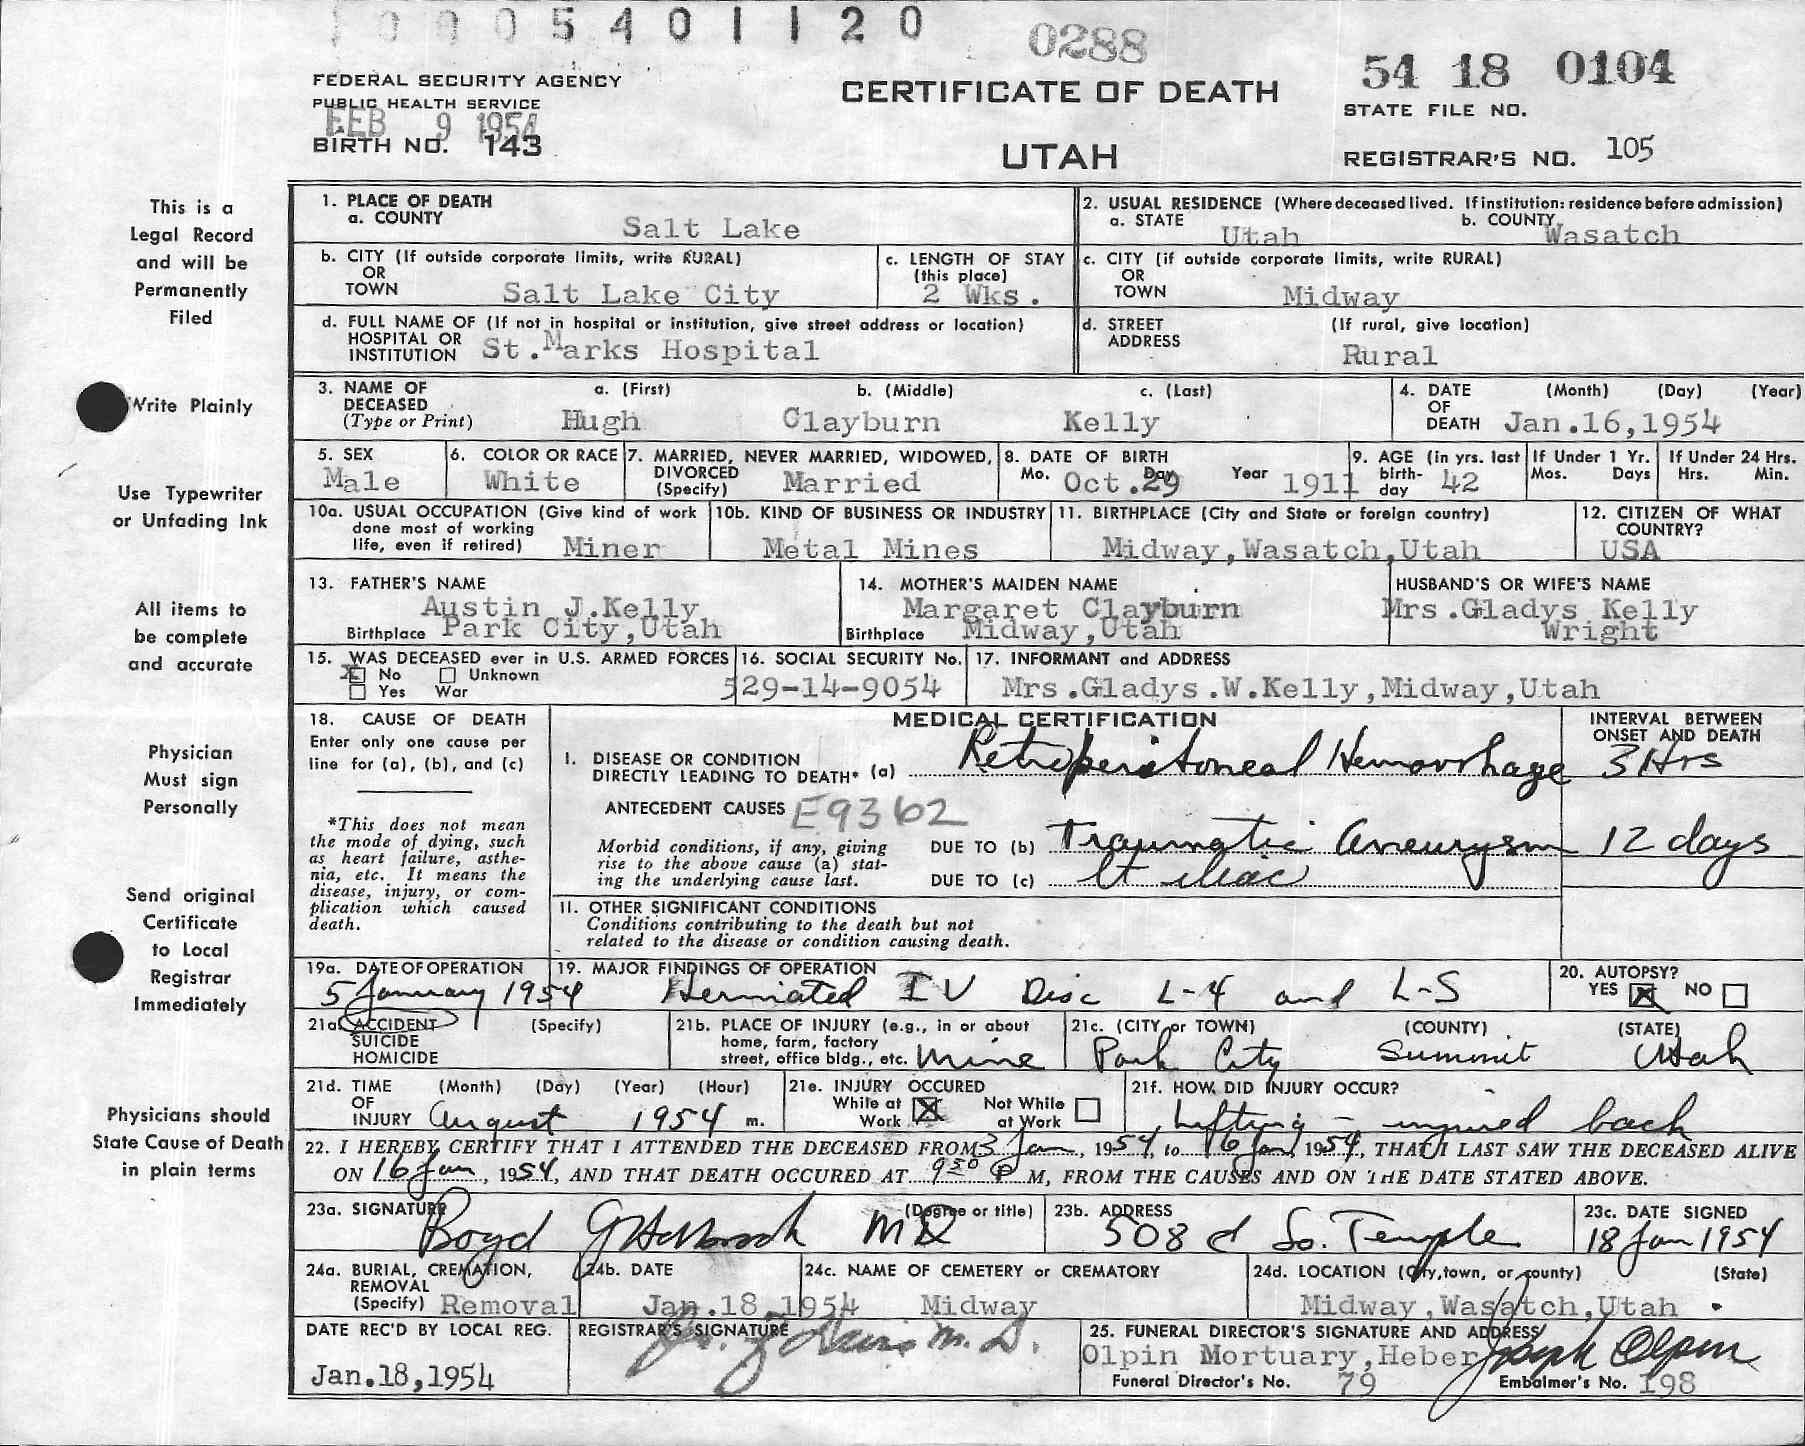 0 0 0 5 4 0 1 1 2 0
0288
54 18 0104
FEDERAL SECURITY AGENCY
PUBLIC HEALTH SERVICE
FEB 9 1954
BIRTH NO. 143
CERTIFICATE OF DEATH
UTAH
STATE FILE NO.
REGISTRAR'S NO. 105
This is a
Legal Record
and will be
Permanently
Filed
Write Plainly
Use Typewriter
or Unfading Ink
All items to
be complete
and accurate
Physician
Must sign
Personally
Send original
Certificate
to Local
Registrar
Immediately
Physicians should
State Cause of Death
in plain terms
1. PLACE OF DEATH
a. COUNTY Salt Lake
2. USUAL RESIDENCE (Where deceased lived. If institution: residence before admission)
a. STATE Utah b. COUNTY Wasatch
b. CITY (If outside corporate limits, write RURAL)
OR
TOWN Salt Lake City
c. LENGTH OF STAY
(this place)
2 Wks.
c. CITY (if outside corporate limits, write RURAL)
OR
TOWN Midway
d. FULL NAME OF (If not in hospital or institution, give street address or location)
HOSPITAL OR
INSTITUTION St.Marks Hospital
d. STREET (If rural, give location)
ADDRESS
Rural
3. NAME OF a. (First) b. (Middle) c. (Last)
DECEASED
(Type or Print) Hugh Clayburn Kelly
4. DATE (Month) (Day) (Year)
OF
DEATH Jan.16,1954
5. SEX
Male
6. COLOR OR RACE
White
7. MARRIED, NEVER MARRIED, WIDOWED,
DIVORCED
(Specify) Married
8. DATE OF BIRTH
Mo. Day Year
Oct.29 1911
9. AGE (in yrs. last
birth-
day 42
If Under 1 Yr.
Mos. Days
If Under 24 Hrs.
Hrs. Min.
10a. USUAL OCCUPATION (Give kind of work
done most of working
life, even if retired) Miner
10b. KIND OF BUSINESS OR INDUSTRY
Metal Mines
11. BIRTHPLACE (City and State or foreign country)
Midway,Wasatch,Utah
12. CITIZEN OF WHAT
COUNTRY?
USA
13. FATHER'S NAME
Austin J.Kelly
Birthplace Park City,Utah
14. MOTHER'S MAIDEN NAME
Margaret Clayburn
Birthplace Midway,Utah
HUSBAND'S OR WIFE'S NAME
Mrs.Gladys Kelly
Wright
15. WAS DECEASED ever in U.S. ARMED FORCES
X No Unknown
Yes War
16. SOCIAL SECURITY No.
529-14-9054
17. INFORMANT and ADDRESS
Mrs.Gladys.W.Kelly,Midway,Utah
18. CAUSE OF DEATH
Enter only one cause per
line for (a), (b), and (c)
*This does not mean
the mode of dying, such
as heart failure, asthe-
nia, etc. It means the
disease, injury, or com-
plication which caused
death.
MEDICAL CERTIFICATION
INTERVAL BETWEEN
ONSET AND DEATH
I. DISEASE OR CONDITION
DIRECTLY LEADING TO DEATH* (a) Retroperitoneal Hemorrhage 3 Hrs
ANTECEDENT CAUSES E9362
Morbid conditions, if any, giving
rise to the above cause (a) stat-
ing the underlying cause last.
DUE TO (b) Traumatic Aneurysm 12 days
DUE TO (c) Lt iliac
II. OTHER SIGNIFICANT CONDITIONS
Conditions contributing to the death but not
related to the disease or condition causing death.
19a. DATE OF OPERATION
5 January 1954
19. MAJOR FINDINGS OF OPERATION
Herniated IV Disc L-4 and L-5
20. AUTOPSY?
YES X NO
21a. ACCIDENT (Specify)
SUICIDE
HOMICIDE
21b. PLACE OF INJURY (e.g., in or about
home, farm, factory
street, office bldg., etc. Mine
21c. (CITY or TOWN) (COUNTY) (STATE)
Park City Summit Utah
21d. TIME (Month) (Day) (Year) (Hour)
OF
INJURY August 1954 m.
21e. INJURY OCCURED
While at Work X Not While at Work
21f. HOW DID INJURY OCCUR?
Lifting - injured back
22. I HEREBY CERTIFY THAT I ATTENDED THE DECEASED FROM 3 Jan, 1954, to 16 Jan, 1954, THAT I LAST SAW THE DECEASED ALIVE
ON 16 Jan, 1954, AND THAT DEATH OCCURED AT 9:50 P M, FROM THE CAUSES AND ON THE DATE STATED ABOVE.
23a. SIGNATURE (Degree or title)
Boyd G Holbrook MD
23b. ADDRESS
508 E So. Temple
23c. DATE SIGNED
18 Jan 1954
24a. BURIAL, CREMATION,
REMOVAL
(Specify) Removal
24b. DATE
Jan.18,1954
24c. NAME OF CEMETERY or CREMATORY
Midway
24d. LOCATION (City, town, or county) (State)
Midway,Wasatch,Utah.
DATE REC'D BY LOCAL REG.
Jan.18,1954
REGISTRAR'S SIGNATURE
M.D.
25. FUNERAL DIRECTOR'S SIGNATURE AND ADDRESS
Olpin Mortuary,Heber Joseph Olpin
Funeral Director's No. 79 Embalmer's No. 198